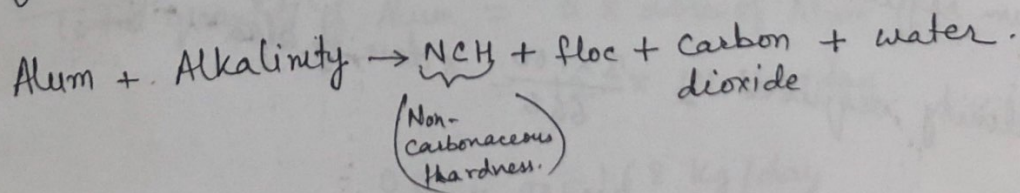 Alum + Alkalinity → NCH + floc + Carbon dioxide + water.
(Non-
Carbonaceous
Hardness.)